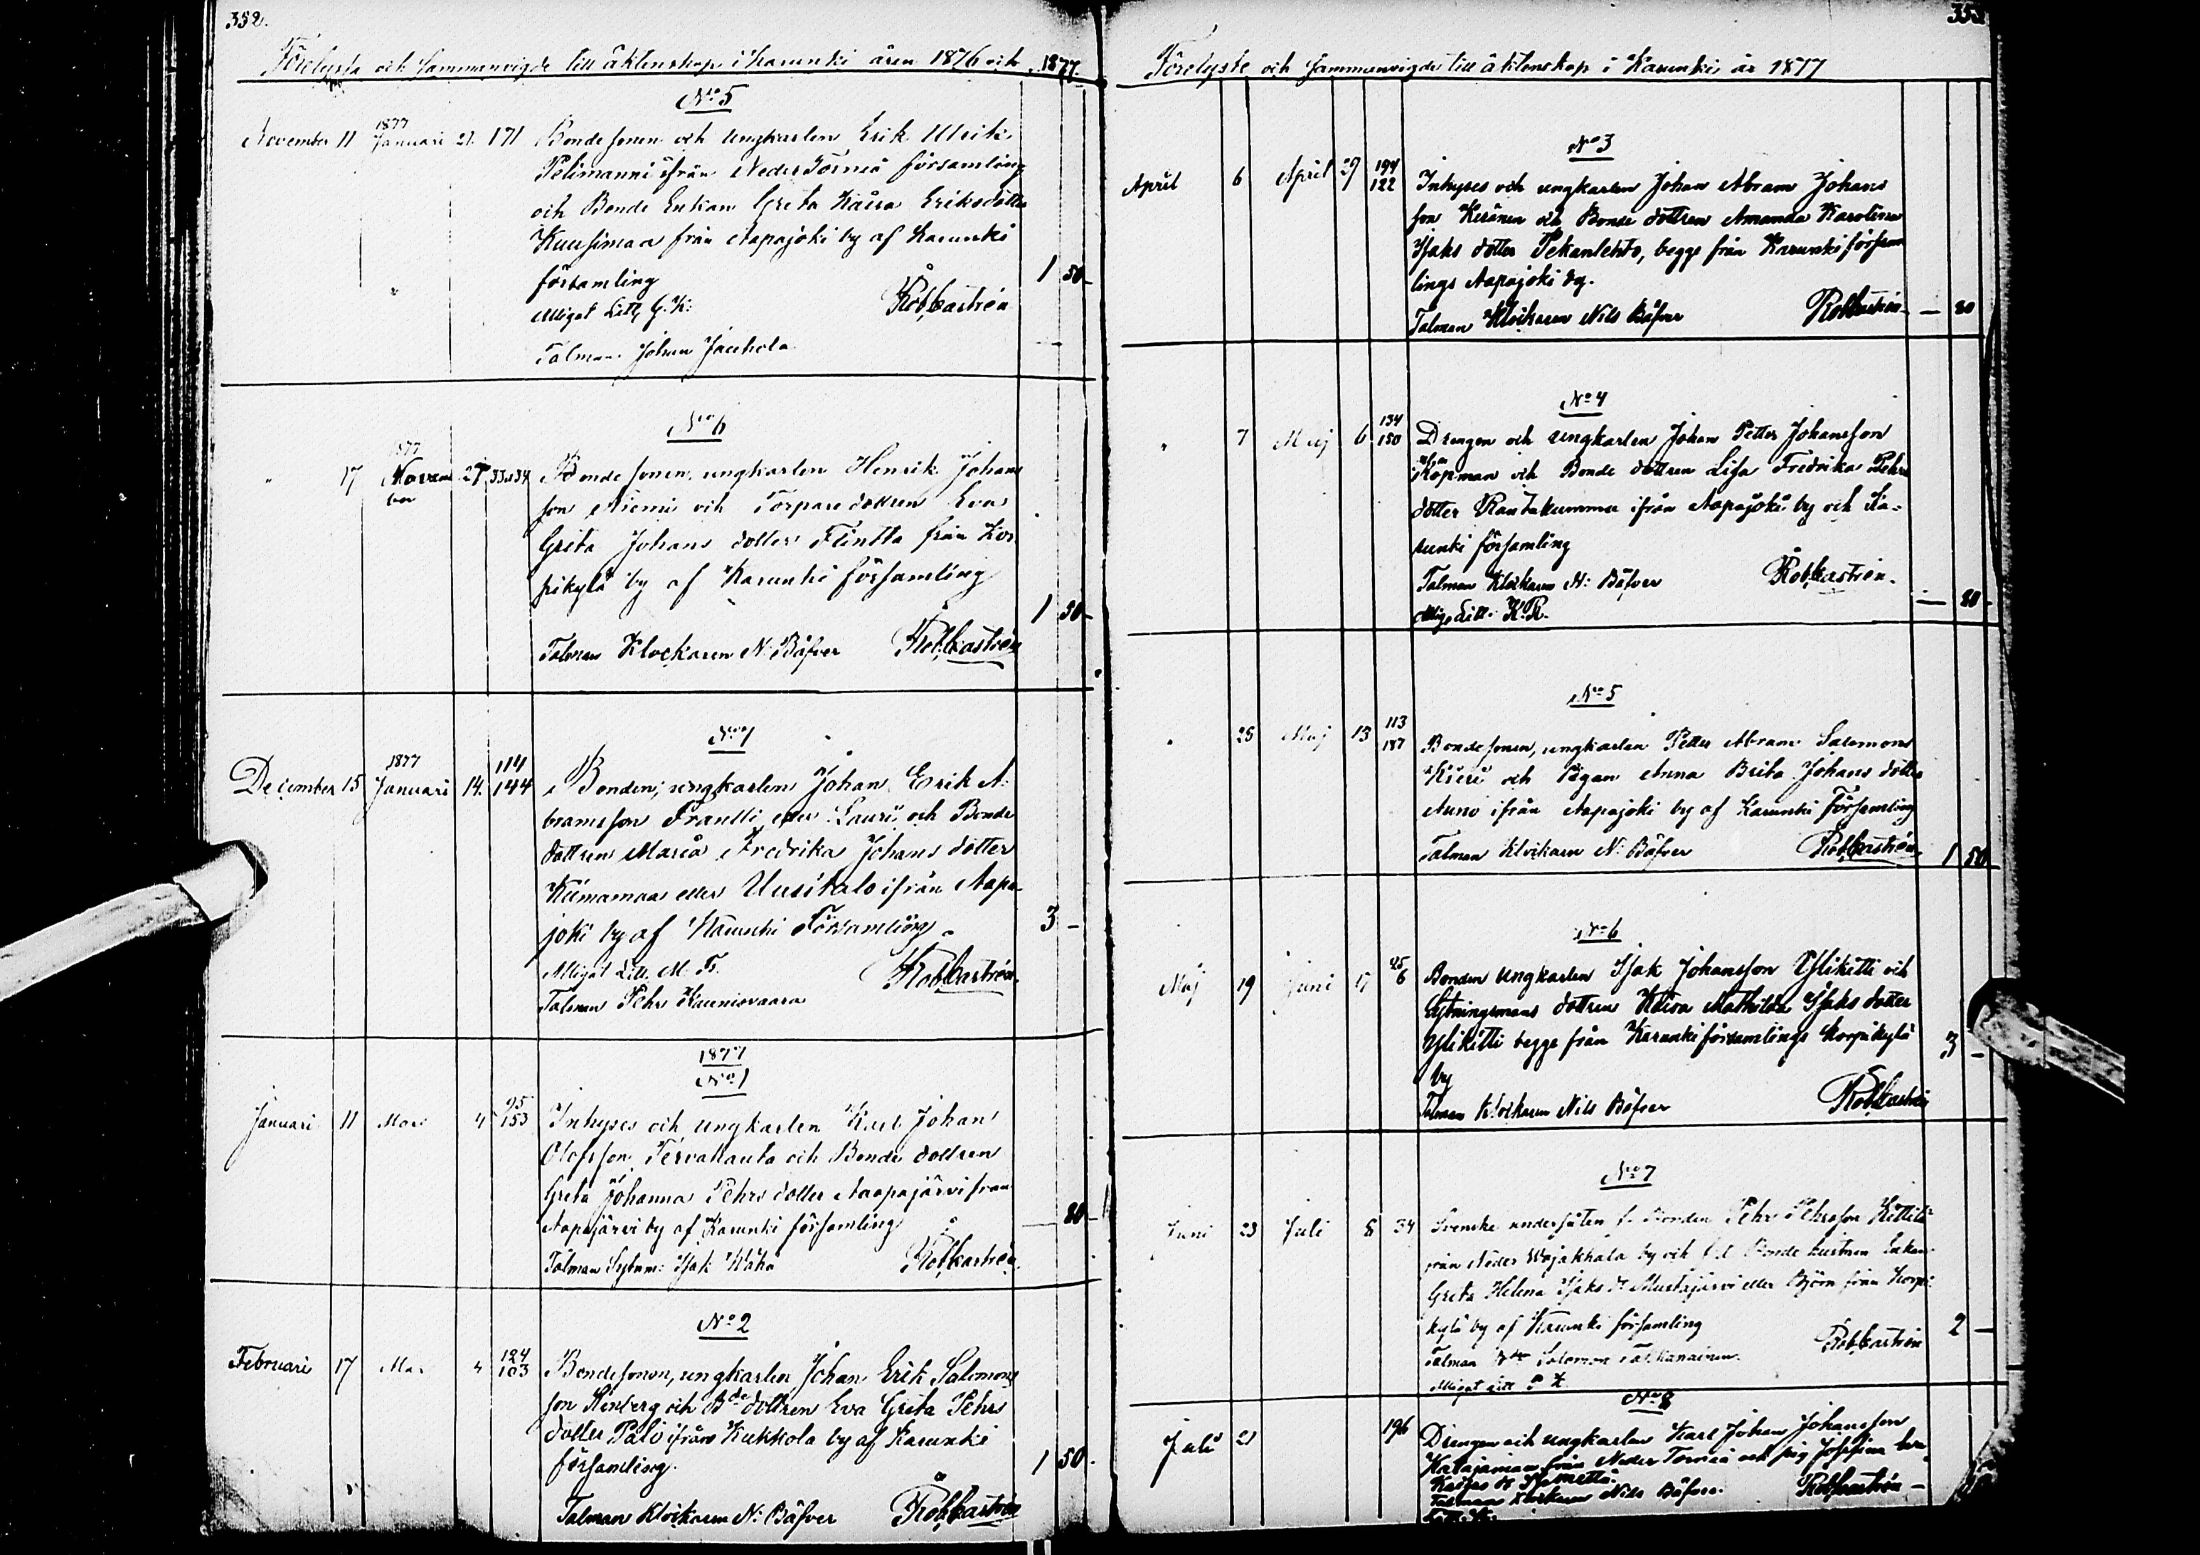 352.
Förelysta och Sammanvigde till äktenskap i Karunki åren 1876 och 1877.
No 5
November 11 1877 Januari 21. 171 Bonde sonen och ungkarlen Erik Ulrik
Pelimanni ifrån Neder Torneå församling
och Bonde Enkan Greta Kaisa Eriksdotter
Kuusimaa från Aapajoki by af Karunki
församling 1 50
Alligat Litt. G. K:
Talman Johan Jauhola
No 6
" 17 1877 Novem 33.34 Bonde sonen, ungkarlen Henrik Johans
ber
son Niemi och Torpare dottren Eva
Greta Johans dotter Flintta från Kor
pikylä by af Karunki församling
1 50
Talman Klockaren N: Bäfver
No 7
December 15 1877 Januari 14. 114 144 Bonden, ungkarlen Johan Erik A
bramsson Frantti eller Lauri och Bonde
dottren Maria Fredrika Johans dotter
Kiimamaa eller Uusitalo ifrån Aapa
joki by af Karunki Församling 3 –
Alligat Litt. M. F.
Talman Pehr Kauniovaara
1877
No 1
Januari 11 Mars 4 95 153 Inhyses och ungkarlen Karl Johan
Olofsson Tervahauta och Bonde dottren
Greta Johanna Pehrs dotter Aapajärvi från
Aapajärvi by af Karunki församling — 80
Talman Isak
No 2
Februari 17 Mars 4 124 103 Bondesonen, ungkarlen Johan Erik Salomons
son Kinberg och Bde dottren Eva Greta Pehrs
dotter Palo ifrån Kukkola by af Karunki
församling. 1 50
Talman Klockaren N: Bäfver
353
Förelyste och Sammanvigde till äktenskap i Karunki år 1877
No 3
April 6 April 29 194 122 Inhyses och ungkarlen Johan Abram Johans
son Keränen och Bonde dottren Amanda Karolina
Isaks dotter Pekanlehto, begge från Karunki försam
lings Aapajoki by.
Talman Klockaren Nils Bäfver — 80
No 4
" 7 Maj 6 134 150 Drengen och ungkarlen Johan Petter Johansson
Kopman och Bonde dottren Lisa Fredrika Pehrs
dotter Rantakummu ifrån Aapajoki by och Ka-
runki församling
Talman Klockaren N: Bäfver
— 80
Allig. Litt. K. R.
No 5
" 28 Maj 13 113 187 Bondesonen, ungkarlen Petter Abram Salomons
Kieri och Pigan Anna Brita Johans dotter
Anno ifrån Aapajoki by af Karunki Församling
Talman Klockaren N: Bäfver 1 50
No 6
Maj 19 Juni 17 45 6 Bonden ungkarlen Isak Johansson Ylikitti och
dottren Mathilda Isaks dotter
Ylikitti begge från Karunki församlings Korpikylä 3 –
by
Talman Klockaren Nils Bäfver
No 7
Juni 23 Juli 8 34 Svenske undersåten f. Bonden Pehr Pehrsson Kittilä
från Neder Wojakkala by och f.d. Bonde hustrun Enkan
Greta Helena Isaks dr Mustajärvi eller Björn från Korpi-
kylä by af Karunki församling 2 —
Talman Salomon
Alligat Litt P. K.
No 8
Juli 21 196 Drengen och ungkarlen Karl Johan Johansson
Katajamaa från Neder Torneå och pig Josefina
Talman Klockaren Nils Bäfver